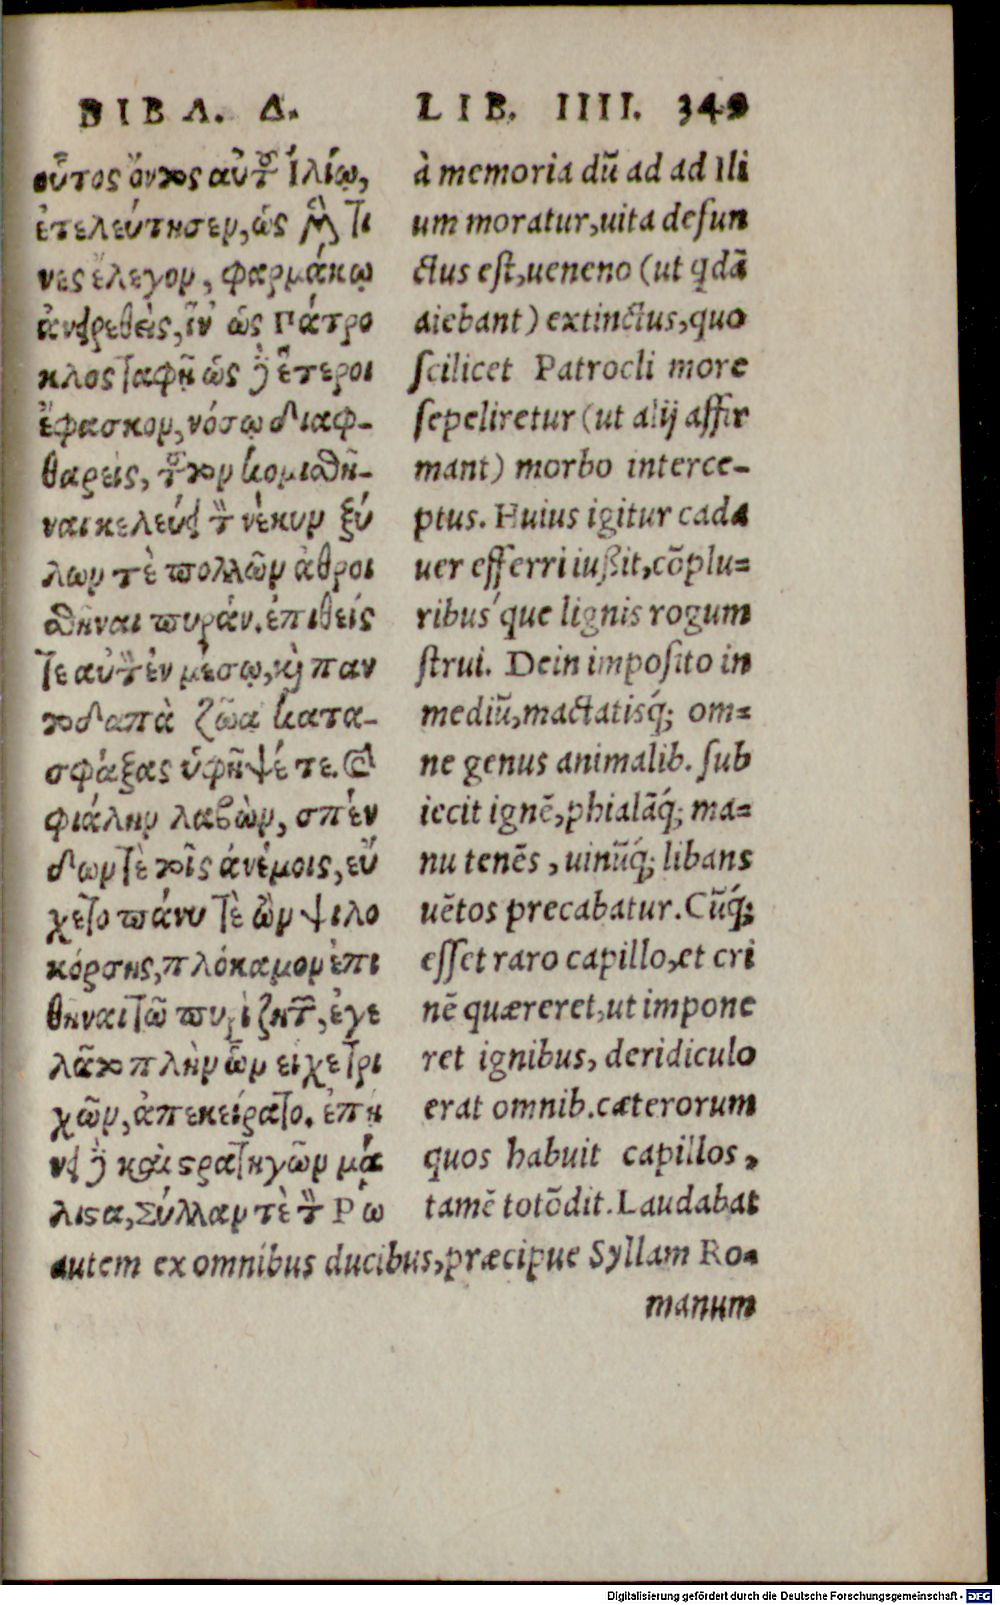 ΒΙΒΛ. Δ.
οὗτος ὄντος αὐτοῦ Ἰλίῳ,
ἐτελεύτησεν, ὡς μὲν τι
νες ἔλεγον, φαρμάκῳ
ἀναιρεθεὶς, ἵν' ὡς Πάτρο
κλος ταφῇ ὡς δὲ ἕτεροι
ἔφασκον, νόσῳ διαφ-
θαρεὶς, τοῦτον κομισθῆ-
ναι κελεύει τὸν νέκυν ξύ
λων τὲ πολλῶν ἀθροι
σθῆναι πυράν. ἐπιθείς
τε αὐτὸν ἐν μέσῳ, καὶ παν
τοδαπὰ ζῶα κατα-
σφάξας ὑφῆψέ τε. καὶ
φιάλην λαβὼν, σπέν
δων τὲ τοῖς ἀνέμοις, εὔ
χετο πάνυ τὲ ὢν ψιλο
κόρσης, πλόκαμον ἐπι
θῆναι τῶ πυρὶ ζητῶν, ἐγε
λᾶτο πλὴν ὧν εἶχε τρι
χῶν, ἀπεκείρατο. ἐπή
νει δὲ καὶ στρατηγῶν μά
λιστα, Σύλλαν τὲ τὸν Ῥω
LIB. IIII. 349
à memoria dũ ad ad Ili
um moratur, uita defun
ctus est, ueneno (ut qdã
aiebant) extinctus, quo
scilicet Patrocli more
sepeliretur (ut alij affir
mant) morbo interce-
ptus. Huius igitur cada
uer efferri iußit, cõplu-
ribus'que lignis rogum
strui. Dein imposito in
mediũ, mactatisq́; om-
ne genus animalib. sub
iecit ignẽ, phialãq́; ma-
nu tenẽs, uinũq́; libans
uẽtos precabatur. Cũq́;
esset raro capillo, et cri
nẽ quæreret, ut impone
ret ignibus, deridiculo
erat omnib. cæterorum
quos habuit capillos,
tamẽ totõdit. Laudabat
autem ex omnibus ducibus, præcipue Syllam Ro-
manum
Digitalisierung gefördert durch die Deutsche Forschungsgemeinschaft - DFG